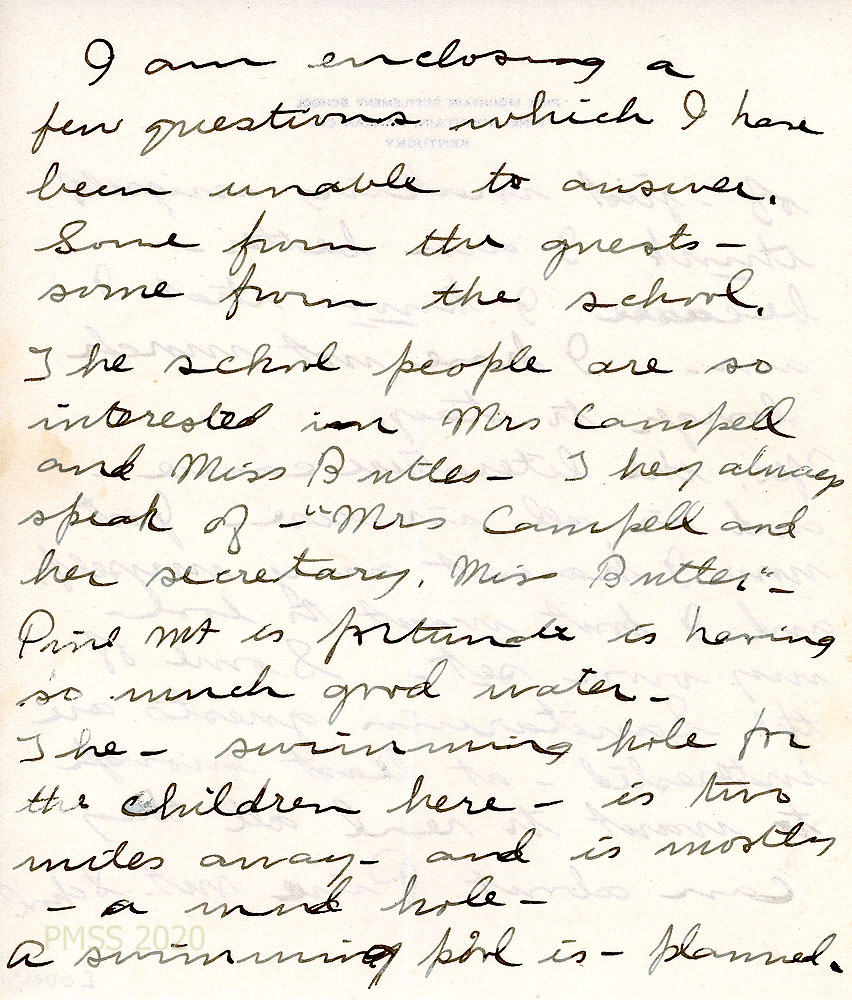 I am enclosing a
few questions which I have
been unable to answer.
Some from the guests –
some from the school.
The school people are so
interested in Mrs Campell
and Miss Buttles – They always
speak of – "Mrs Campell and
her secretary, Miss Butter" –
Pine Mt is fortunate is having
so much good water –
The – swimming hole for
the children here – is two
miles away – and is mostly
– a mud hole –
A swimming pool is – planned.
PMSS 2020